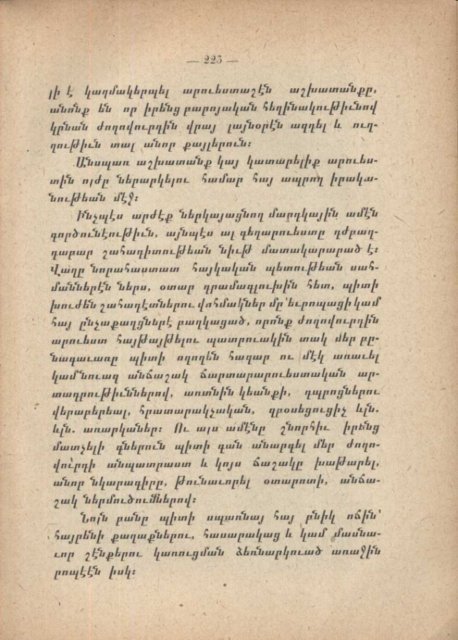 — 223 —
լի է կազմակերպել արուեստաշէն աշխատանքը,
անոնք են որ իրենց բարոյական հեղինակութիւնով
կրնան ժողովուրդին վրայ լայնօրէն ազդել և ուղ-
ղութիւն տալ անոր քայլերուն։
Անսպառ աշխատանք կայ կատարելիք արուես-
տին ոյժը ներարկելու համար հայ ապրող իրակա-
նութեան մէջ։
Ինչպէս արժէք ներկայացնող մարդկային ամէն
գործունէութիւն, այնպէս ալ գեղարուեստը դժբաղ-
դաբար շահադիտութեան նիւթ մատակարարած է։
Վաղը նորահաստատ հայկական պետութեան սահ-
մաններէն ներս, օտար դրամագլուխին հետ, պիտի
խուժեն շահադէտներու վոհմակներ մը՝ եւրոպացի կամ
հայ ընչաքաղցներէ բաղկացած, որոնք ժողովուրդին
արուեստ հայթայթելու պատրուակին տակ մեր բը-
նագաւառը պիտի ողողեն հազար ու մէկ առաւել
կամ նուազ անճաշակ ճարտարարուեստական ար-
տադրութիւններով, առտնին կեանքի, դպրոցներու
վերաբերեալ, հրատարակչական, զբօսեցուցիչ ևլն.
ևլն. առարկաներ։ Ու այս ամէնը շնորհիւ իրենց
մատչելի գներուն պիտի գան անարգել մեր ժողո-
վուրդի անպատրաստ և կոյս ճաշակը խաթարել,
անոր նկարագիրը, թունաւորել օտարոտի, անճա-
շակ ներմուծումներով։
Նոյն բանը պիտի սպառնայ հայ բնիկ ոճին՝
հայրենի քաղաքներու, հասարակաց և կամ մասնա-
ւոր շէնքերու կառուցման ձեռնարկուած առաջին
րոպէէն իսկ։